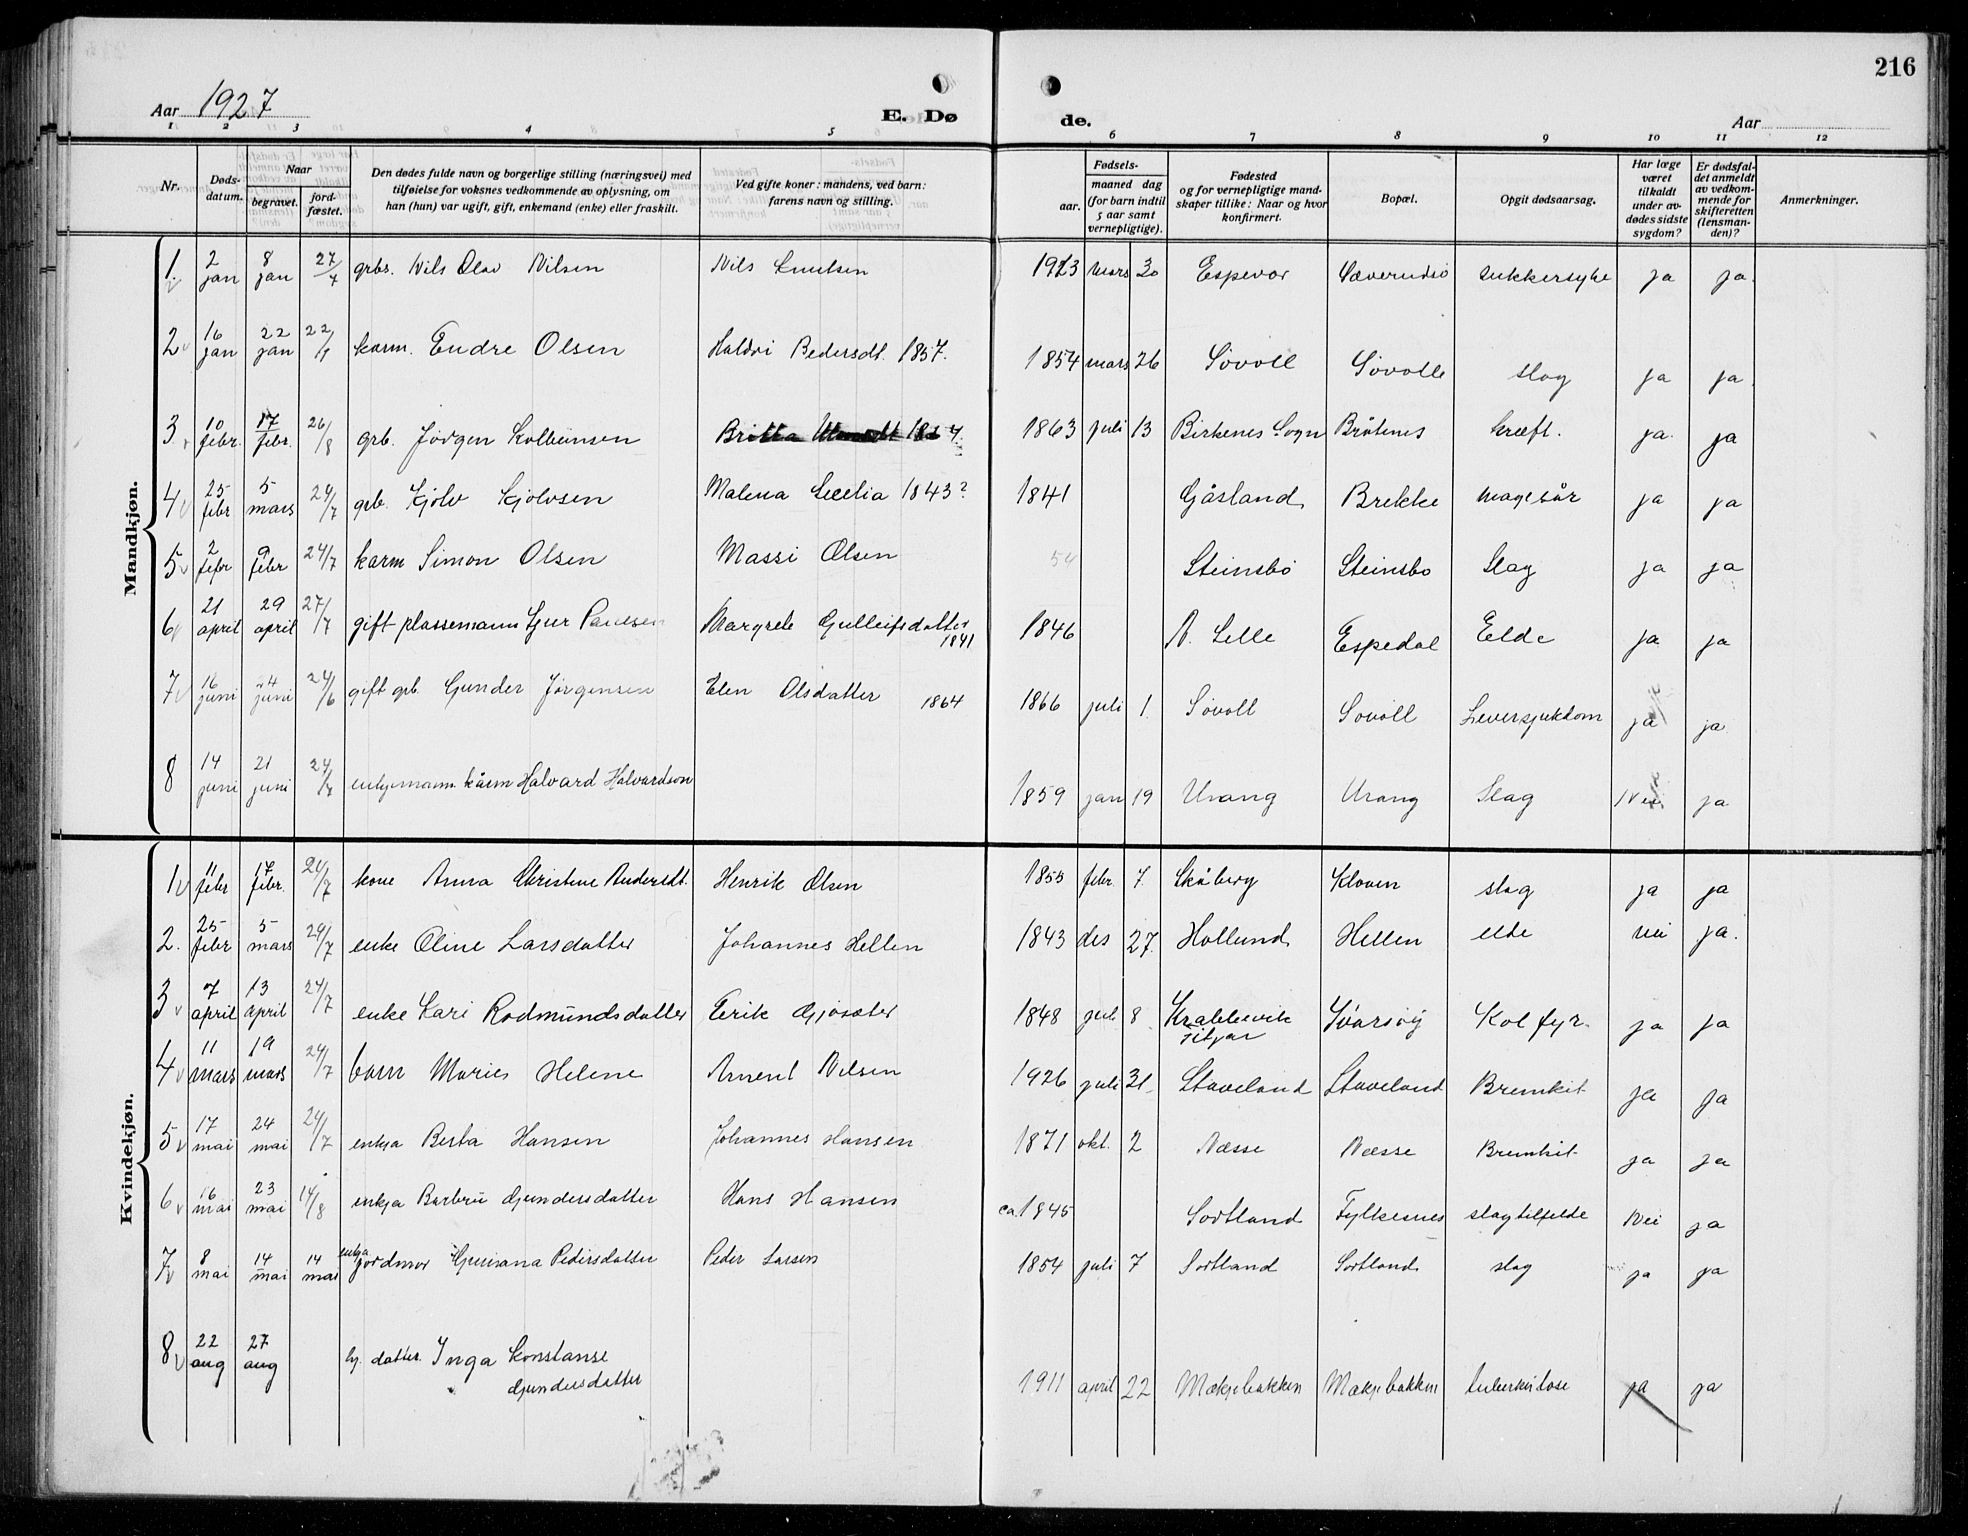 216
Aar 1927
E. Dø
de.
Aar
1 2 3 4 5 6 7 8 9 10 11 12
Nr.
Døds-
datum.
Naar
begravet.
jord-
fæstet.
Den dødes fulde navn og borgerlige stilling (næringsvei) med
tilføielse for voksnes vedkommende av oplysning, om
han (hun) var ugift, gift, enkemand (enke) eller fraskilt.
Ved gifte koner: mandens, ved barn:
farens navn og stilling.
Fødsels-
aar.
maaned dag
(for barn indtil
5 aar samt
vernepligtige).
Fødested
og for vernepligtige mand-
skaper tillike: Naar og hvor
konfirmert.
Bopæl.
Opgit dødsaarsag.
Har læge
været
tilkaldt
under av-
dødes sidste
sygdom?
Er dødsfal-
det anmeldt
av vedkom-
mende for
skifteretten
(lensman-
den)?
Anmerkninger.
Mandkjøn.
1 2 jan 8 jan 27/7 grbr. Nils Olav Nilsen Nils Knutsen 1923 mars 30 Espevær sukkersyke ja ja.
2 16 jan 22 jan 22/1 karm. Endre Olsen Pedersdt. 1857. 1854 mars 26 Sövoll Sövolle slag ja ja.
3 10 febr. 17 febr. 26/8 grb. Jørgen Kolbeinsen Britta 1863 juli 13 Birkenes Sogn Bråtenes kræft. ja. ja
4 25 febr 5 mars 24/7 grb. Kjölv Kjölvsen Malena Cecelia 1843? 1841 Gåsland Brekke magesår ja ja
5 2 febr 9 febr 24/7 karm Simon Olsen Massi Olsen 54 Steinsbö Steinsbö Slag ja ja
6 21 april 29 april 27/7 gift plassemann Sjur Paulsen Margrete Gulleifsdatter 1841 1846 N. Lelle Espedal Elde ja ja
7 16 juni 24 juni 24/6 gift grb. Gunder Jörgensen Elen Olsdatter 1864 1866 juli 1. Sövoll Sövoll Leversjukdom ja ja
8 14 juni 21 juni 24/7 enkjemann kårm Halvard Halvardson 1859 jan 19 Urang Urang Slag Nei ja
Kvindekjøn.
1 11 febr 17 febr. 24/7 kone Anna Christine Andersdt. Henrik Olsen 1855 febr. 7. Skåberg Kloven slag ja ja
2. 25 febr 5 mars 29/7 enke Oline Larsdatter Johannes Hellen 1843 des 27. Hollund Hellen elde nei ja.
3 7 april 13 april 24/7 enke Kari Rodmundsdatter Erik Gjøsæter 1848 juli 8 Krabbevik Fitjar Kolfyr. ja ja
4 11 mars 19 mars 24/7 barn Marie Helene Arnent Nilsen 1926 juli 31. Staveland Staveland Bremkit ja ja
5 17 mai 24 mai 24/7 enkja Berta Hansen Johannes Hansen 1871 okt. 2 Næsse Næsse Brunkit ja ja
6 16 mai 23 mai 14/8 enkja Barbru Gjundersdatter Hans Hansen ca 1845 Sortland Fylkesnes slagtilfelde Nei ja
7 8 mai 14 mai 14 mai enkja jordmor Pedersdatter Peder Larsen 1854 juli 7 Sortland Sortland slag ja ja
8 22 aug 27 aug datter. Inga Konstanse
Gjundersdatter 1911 april 22 Mækjebakken Mækjebakken tuberkulose ja ja